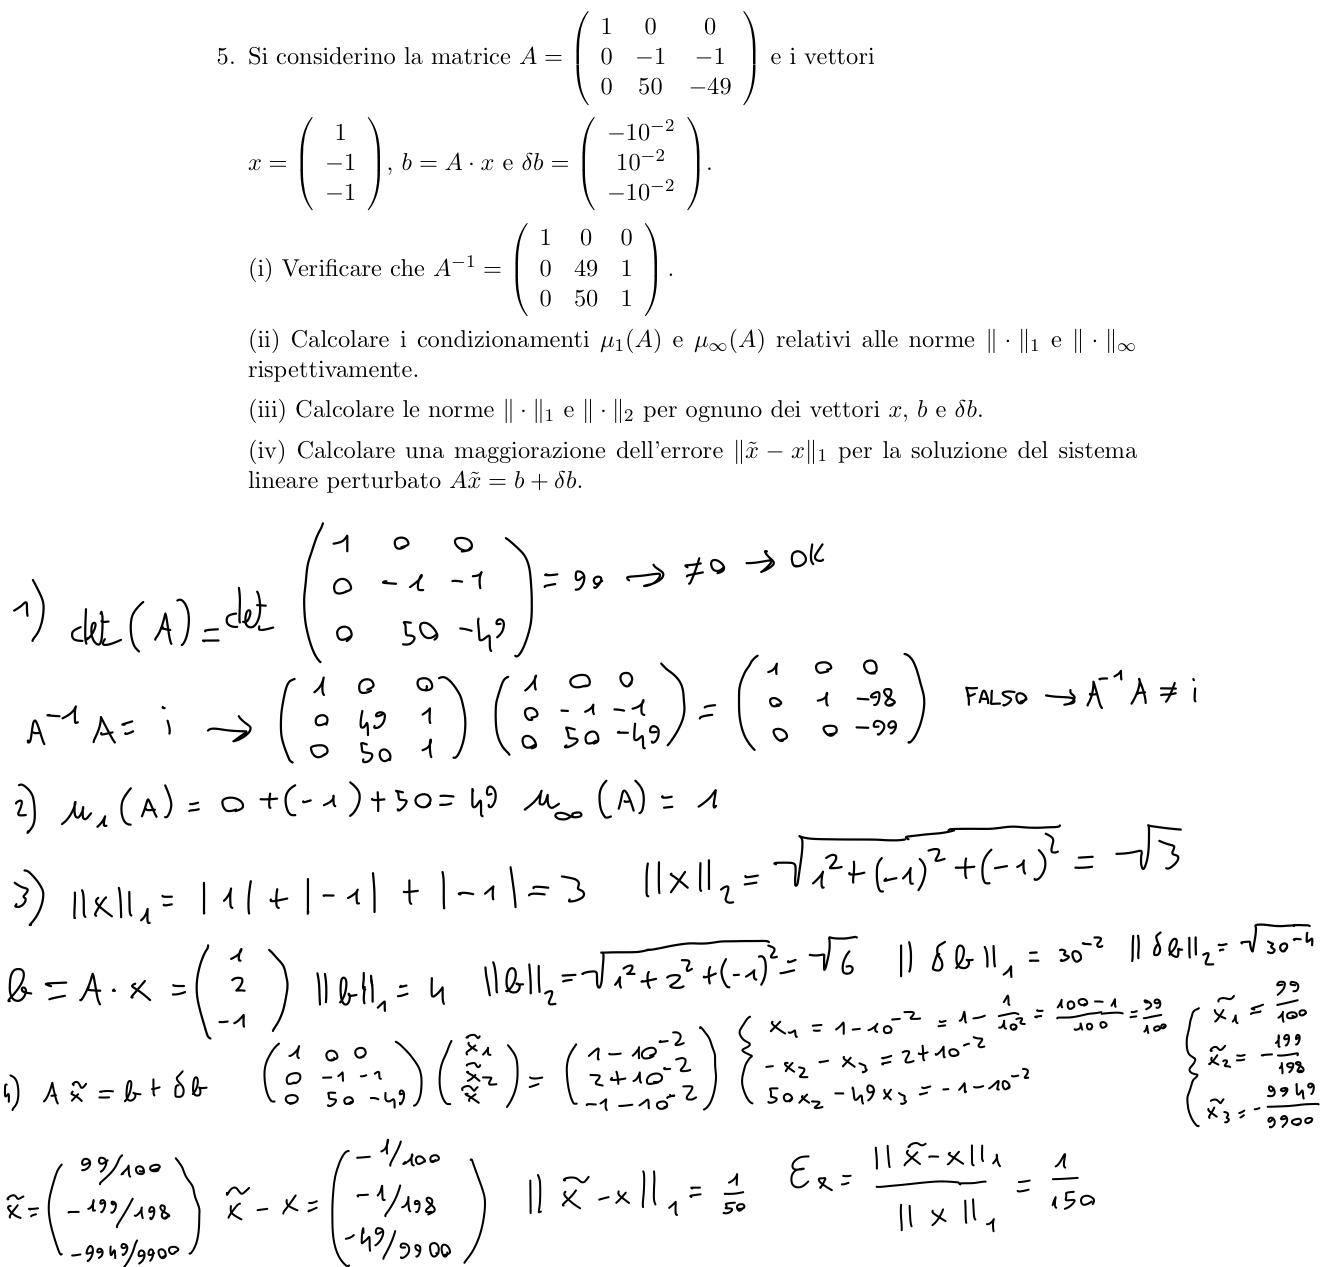 5. Si considerino la matrice A = ( 1 0 0 ; 0 −1 −1 ; 0 50 −49 ) e i vettori
x = ( 1 ; −1 ; −1 ), b = A · x e δb = ( −10⁻² ; 10⁻² ; −10⁻² ).
(i) Verificare che A⁻¹ = ( 1 0 0 ; 0 49 1 ; 0 50 1 ).
(ii) Calcolare i condizionamenti μ₁(A) e μ∞(A) relativi alle norme ‖ · ‖₁ e ‖ · ‖∞
rispettivamente.
(iii) Calcolare le norme ‖ · ‖₁ e ‖ · ‖₂ per ognuno dei vettori x, b e δb.
(iv) Calcolare una maggiorazione dell'errore ‖x̃ − x‖₁ per la soluzione del sistema
lineare perturbato Ax̃ = b + δb.
1) det(A) = det ( 1 0 0 ; 0 -1 -1 ; 0 50 -49 ) = 99 → ≠0 → OK
A⁻¹ A = i → ( 1 0 0 ; 0 49 1 ; 0 50 1 ) ( 1 0 0 ; 0 -1 -1 ; 0 50 -49 ) = ( 1 0 0 ; 0 1 -98 ; 0 0 -99 ) FALSO → A⁻¹ A ≠ i
2) μ₁(A) = 0 + (-1) + 50 = 49 μ∞(A) = 1
3) ||x||₁ = |1| + |-1| + |-1| = 3 ||x||₂ = √(1² + (-1)² + (-1)²) = √3
b = A · x = ( 1 ; 2 ; -1 ) ||b||₁ = 4 ||b||₂ = √(1² + 2² + (-1)²) = √6 ||δb||₁ = 30⁻² ||δb||₂ = √(30⁻⁴)
4) A x̃ = b + δb ( 1 0 0 ; 0 -1 -1 ; 0 50 -49 ) ( x̃₁ ; x̃₂ ; x̃ ) = ( 1 - 10⁻² ; 2 + 10⁻² ; -1 - 10⁻² ) { x₁ = 1 - 10⁻² = 1 - 1/10² = (100 - 1)/100 = 99/100 ; -x₂ - x₃ = 2 + 10⁻² ; 50x₂ - 49x₃ = -1 - 10⁻² { x̃₁ = 99/100 ; x̃₂ = -199/198 ; x̃₃ = -9949/9900
x̃ = ( 99/100 ; -199/198 ; -9949/9900 ) x̃ - x = ( -1/100 ; -1/198 ; -49/9900 ) ||x̃ - x||₁ = 1/50 Ɛₓ = ||x̃ - x||₁ / ||x||₁ = 1/150